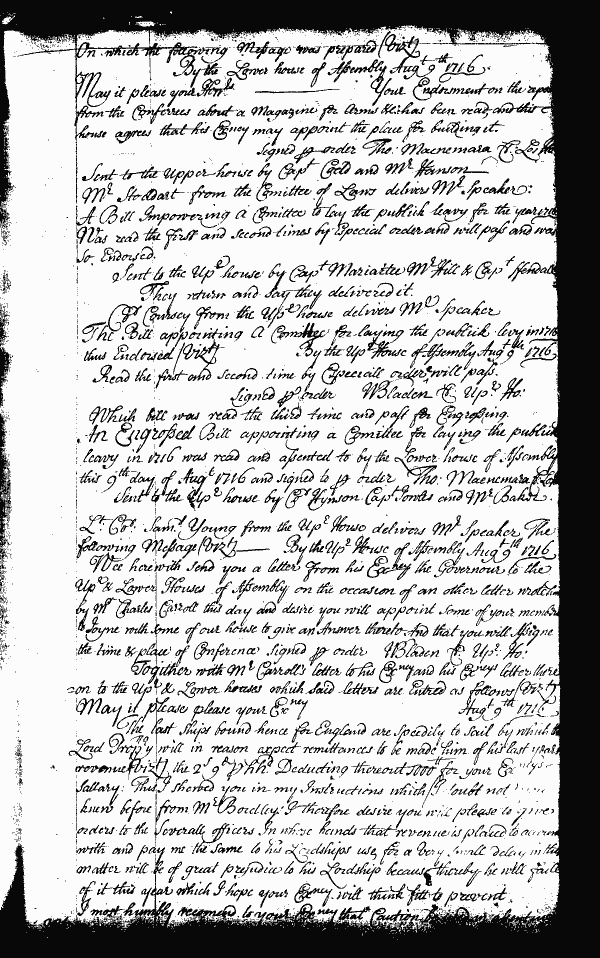 On which the following Message was prepared (Vizt)
By the Lower house of Assembly Augt 9th 1716.
May it please your Honrs Your Endorsment on the
from the Conferrees about a Magazine for Arms &c: has been read, and this
house agrees that his Exncy may appoint the place for building it.
Signed p order Tho: Macnemara Cl
Sent to the Upper house by Capt Gold and Mr Henson
Mr. Stoddart from the Comittee of Laws delivers Mr Speaker:
A Bill Impowering A Comittee to lay the publick leavy for the year 1716
Was read the first and second times by Especial order and will pass and was
So Endorsed.
Sent to the Upr house by Capt Mariartee Mr Hill & Capt
They return and say they delivered it.
Coursey from the Upr house delivers Mr Speaker
The Bill appointing A Comittee for laying the publick levy in 1716
thus Endorsed (Vizt) By the Upr House of Assembly Augt 9th 1716
Read the first and second time by Especiall order & will pass.
Signed p order WBladen Cl Upr Ho:
Which bill was read the third time and past for Engrossing.
An Engrossed Bill appointing a Comittee for laying the publick
leavy in 1716 was read and assented to by the Lower house of Assembly
this 9th day of Augt 1716 and signed to p order Tho: Macnemara
Sent to the Upr house by Hynson Capt Towles and Mr Baker.
Lt Col. Saml. Young from the Upr House delivers Mr Speaker The
following Message (Vizt) By the Upr House of Assembly Augt 9th 1716
Wee herewith send you a letter from his Exncy the Governour to the
Upr & Lower Houses of Assembly on the occasion of an other letter wrote him
by Mr Charles Carroll this day and desire you will appoint some of your members
to Joyne with some of our house to give an Answer thereto And that you will Assigne
the time & place of Conference Signed p order WBladen Cl Upr Ho:
Together with Mr Carroll's letter to his Exncy and his Exncys letter there
on to the Upr & Lower houses which said letters are Entred as follows (Vizt)
May it please please your Exncy Augt 9th 1716
The last Ships bound hence for England are Speedily to Sail by which the
Lord Proppry will in reason expect remittances to be made him of his last years
revenue (vizt) the 2s 9d p hhd Deducting thereout for your
Sallary: This I shewed you in my Instructions which I doubt not
knew before from Mr Bordley. I therefore desire you will please to give
orders to the Severall officers In whose hands that revenue is placed to account
with and pay me the same to his Lordships use, for a very Small delay in this
matter will be of great prejudice to his Lordship because thereby he will faile
of it this year which I hope your Exncy will think fitt to prevent.
I most humbly recomend to your Exncy that Caution